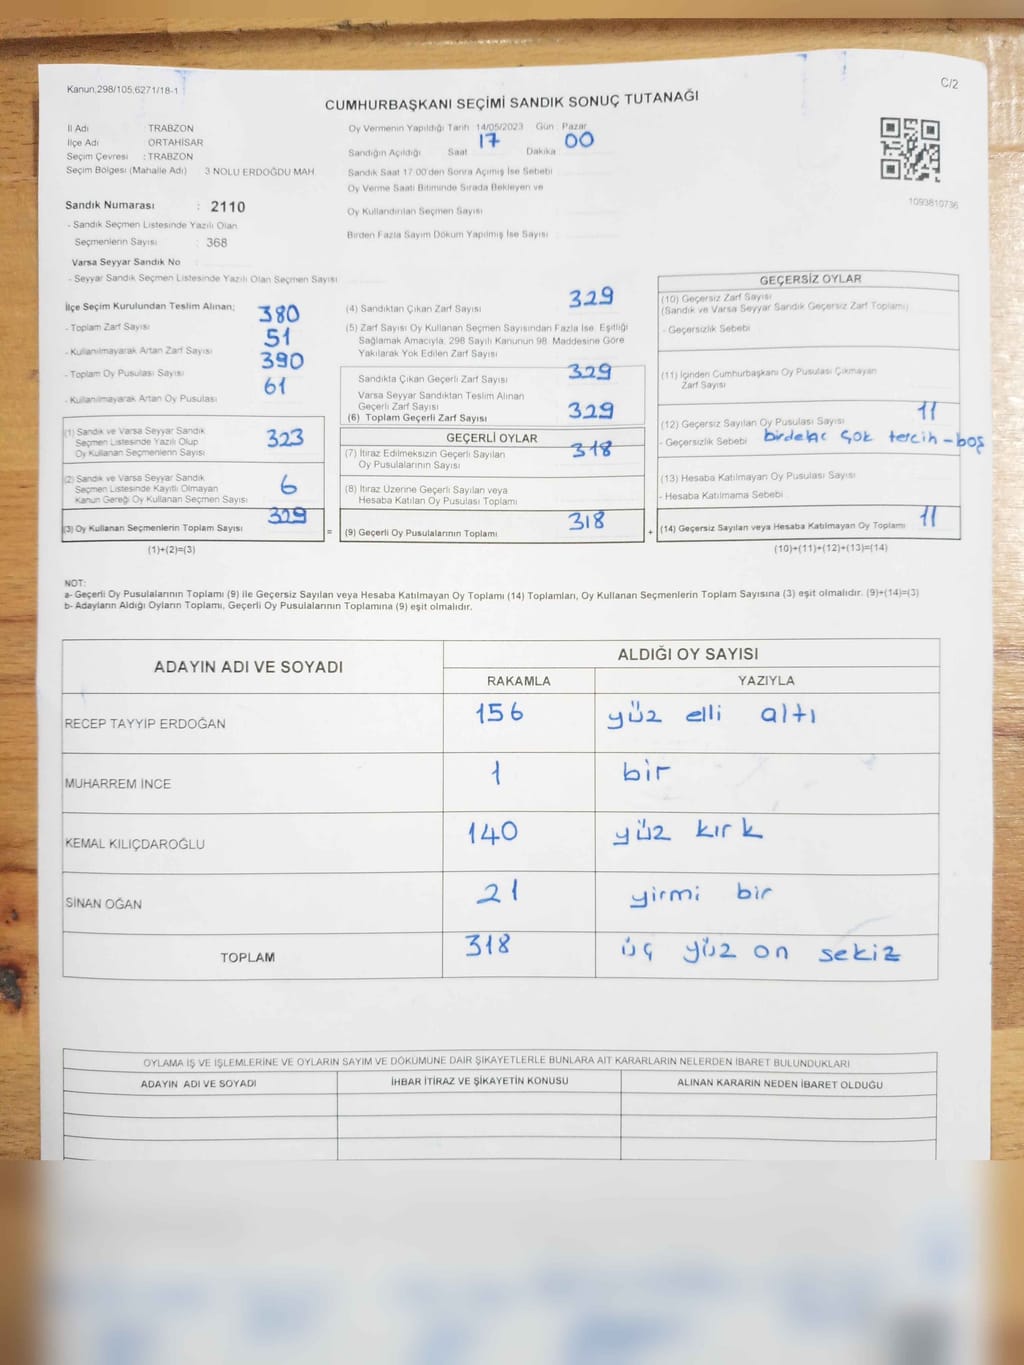 Kanun.298/105,6271/18-1
C/2
CUMHURBAŞKANI SEÇİMİ SANDIK SONUÇ TUTANAĞI
İl Adı TRABZON
İlçe Adı ORTAHİSAR
Seçim Çevresi : TRABZON
Seçim Bölgesi (Mahalle Adı) 3 NOLU ERDOĞDU MAH.
Sandık Numarası : 2110
- Sandık Seçmen Listesinde Yazılı Olan
Seçmenlerin Sayısı : 368
Varsa Seyyar Sandık No
- Seyyar Sandık Seçmen Listesinde Yazılı Olan Seçmen Sayısı
Oy Vermenin Yapıldığı Tarih 14/05/2023 Gün : Pazar
Sandığın Açıldığı Saat 17 Dakika 00
Sandık Saat 17:00'den Sonra Açımış İse Sebebi
Oy Verme Saati Bitiminde Sırada Bekleyen ve
Oy Kullandırılan Seçmen Sayısı
Birden Fazla Sayım Döküm Yapılmış İse Sayısı
1093810736
İlçe Seçim Kurulundan Teslim Alınan;
- Toplam Zarf Sayısı 380
- Kullanılmayarak Artan Zarf Sayısı 51
- Toplam Oy Pusulası Sayısı 390
- Kullanılmayarak Artan Oy Pusulası 61
(1) Sandık ve Varsa Seyyar Sandık
Seçmen Listesinde Yazılı Olup
Oy Kullanan Seçmenlerin Sayısı 323
(2) Sandık ve Varsa Seyyar Sandık
Seçmen Listesinde Kayıtlı Olmayan
Kanun Gereği Oy Kullanan Seçmen Sayısı 6
(3) Oy Kullanan Seçmenlerin Toplam Sayısı 329
(1)+(2)=(3)
=
(4) Sandıktan Çıkan Zarf Sayısı 329
(5) Zarf Sayısı Oy Kullanan Seçmen Sayısından Fazla İse, Eşitliği
Sağlamak Amacıyla, 298 Sayılı Kanunun 98. Maddesine Göre
Yakılarak Yok Edilen Zarf Sayısı
Sandıkta Çıkan Geçerli Zarf Sayısı 329
Varsa Seyyar Sandıktan Teslim Alınan
Geçerli Zarf Sayısı
(6) Toplam Geçerli Zarf Sayısı 329
GEÇERLİ OYLAR
(7) İtiraz Edilmeksizin Geçerli Sayılan
Oy Pusulalarının Sayısı 318
(8) İtiraz Üzerine Geçerli Sayılan veya
Hesaba Katılan Oy Pusulası Toplamı
(9) Geçerli Oy Pusulalarının Toplamı 318
+
GEÇERSİZ OYLAR
(10) Geçersiz Zarf Sayısı
(Sandık ve Varsa Seyyar Sandık Geçersiz Zarf Toplamı)
- Geçersizlik Sebebi
(11) İçinden Cumhurbaşkanı Oy Pusulası Çıkmayan
Zarf Sayısı
(12) Geçersiz Sayılan Oy Pusulası Sayısı 11
- Geçersizlik Sebebi çok tercih-boş
(13) Hesaba Katılmayan Oy Pusulası Sayısı
- Hesaba Katılmama Sebebi
(14) Geçersiz Sayılan veya Hesaba Katılmayan Oy Toplamı 11
(10)+(11)+(12)+(13)=(14)
NOT:
a- Geçerli Oy Pusulalarının Toplamı (9) ile Geçersiz Sayılan veya Hesaba Katılmayan Oy Toplamı (14) Toplamları, Oy Kullanan Seçmenlerin Toplam Sayısına (3) eşit olmalıdır. (9)+(14)=(3)
b- Adayların Aldığı Oyların Toplamı, Geçerli Oy Pusulalarının Toplamına (9) eşit olmalıdır.
ADAYIN ADI VE SOYADI ALDIĞI OY SAYISI
RAKAMLA YAZIYLA
RECEP TAYYİP ERDOĞAN 156 yüz elli altı
MUHARREM İNCE 1 bir
KEMAL KILIÇDAROĞLU 140 yüz kırk
SİNAN OĞAN 21 yirmi bir
TOPLAM 318 üç yüz on sekiz
OYLAMA İŞ VE İŞLEMLERİNE VE OYLARIN SAYIM VE DÖKÜMÜNE DAİR ŞİKAYETLERLE BUNLARA AİT KARARLARIN NELERDEN İBARET BULUNDUKLARI
ADAYIN ADI VE SOYADI İHBAR İTİRAZ VE ŞİKAYETİN KONUSU ALINAN KARARIN NEDEN İBARET OLDUĞU